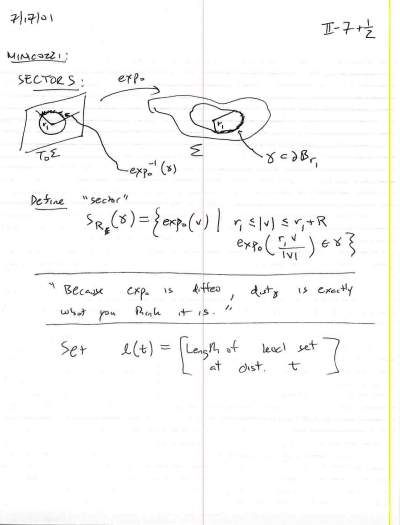 7/17/01
II-7+1/2
MINICOZZI:
SECTORS:
exp₀
r₁
r₁
T₀Σ
Σ
exp₀⁻¹(γ)
γ ⊂ ∂B_{r₁}
Define "sector"
S_R(γ) = {exp₀(v) | r₁ ≤ |v| ≤ r₁+R
exp₀(r₁v/|v|) ∈ γ}
"Because exp₀ is diffeo, is exactly
what you think it is."
Set l(t) = [Length of level set
at dist. t]